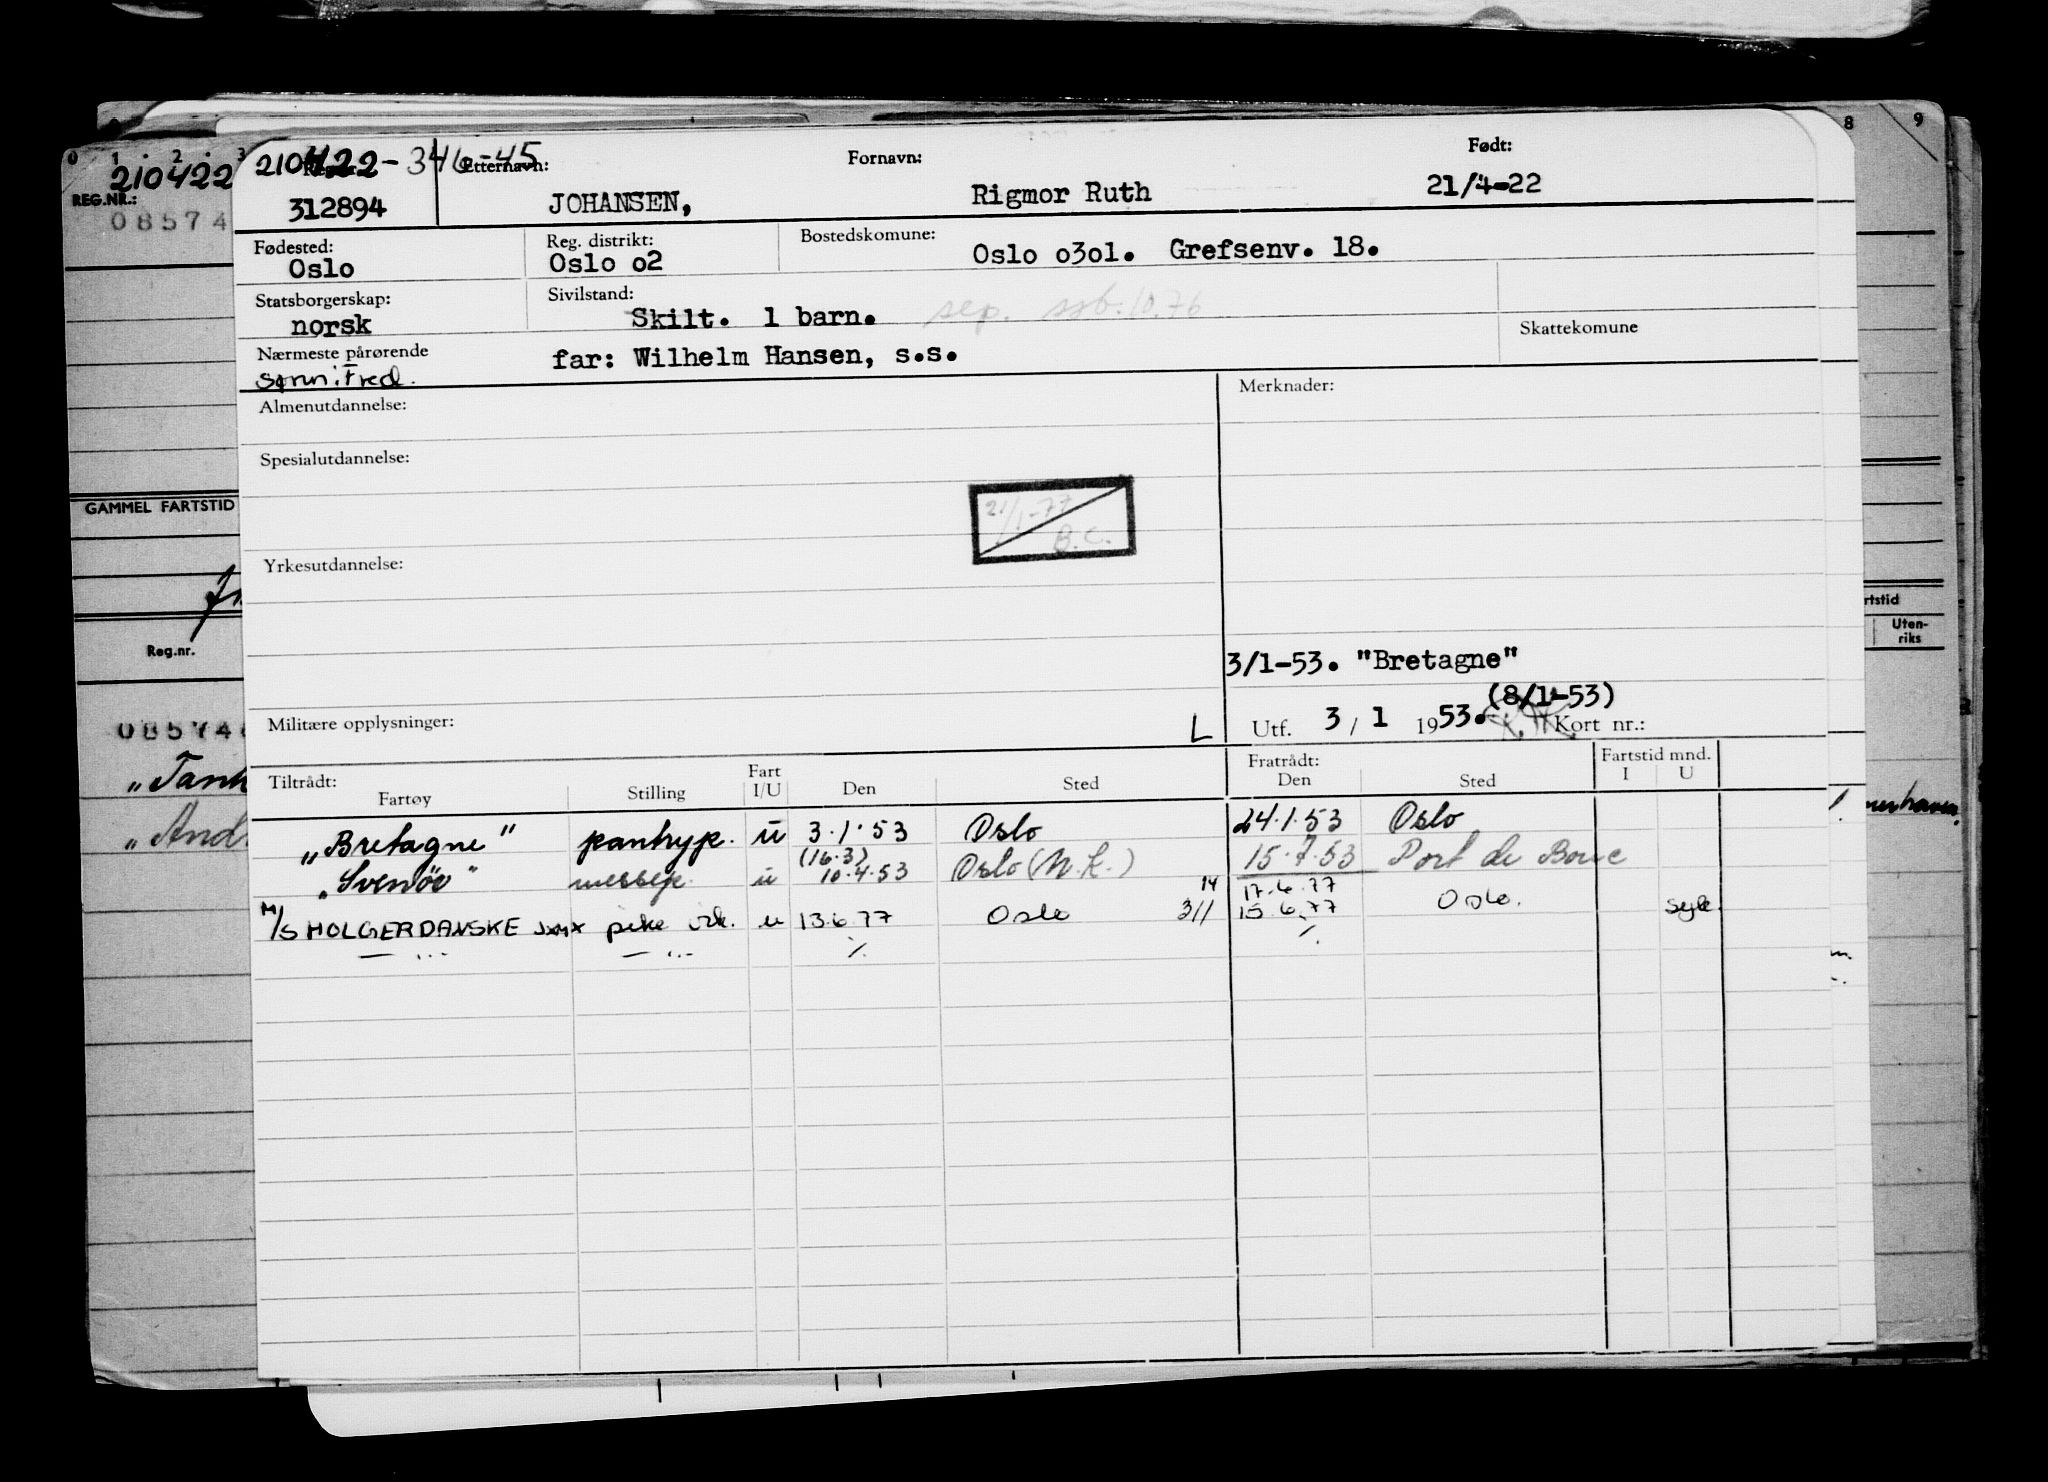 0 1 2 3
8 9
210422
REG.NR.:
08574
GAMMEL FARTSTID
Reg.nr.
08574
"Tank
"And
rtstid
Uten-
riks
210422-346-45
Etternavn:
Fornavn:
Født:
312894
JOHANSEN,
Rigmor Ruth
21/4-22
Fødested:
Reg. distrikt:
Bostedskomune:
Oslo
Oslo o2
Oslo o3ol. Grefsenv. 18.
Statsborgerskap:
Sivilstand:
norsk
Skilt. 1 barn.
sep. 10.76
Skattekomune
Nærmeste pårørende
far: Wilhelm Hansen, s.s.
sønn: Fred.
Almenutdannelse:
Merknader:
Spesialutdannelse:
21/1-77
B.C.
Yrkesutdannelse:
3/1-53. "Bretagne"
(8/1-53)
Militære opplysninger:
L
Utf. 3 / 1 1953.
Kort nr.:
Tiltrådt:
Fratrådt:
Fartstid mnd.
Fartøy
Stilling
Fart
I/U
Den
Sted
Den
Sted
I U
"Bretagne" pantryp. u 3.1.53 Oslo 24.1.53 Oslo
"Svenör" messep. u (16.3) 10.4.53 Oslo (N.K.) 15.7.53 Port de Bouc
14 17.6.77
M/S HOLGERDANSKE pike u 13.6.77 Oslo 311 15.6.77 Oslo. syk.
— " — — " — ./. ./.